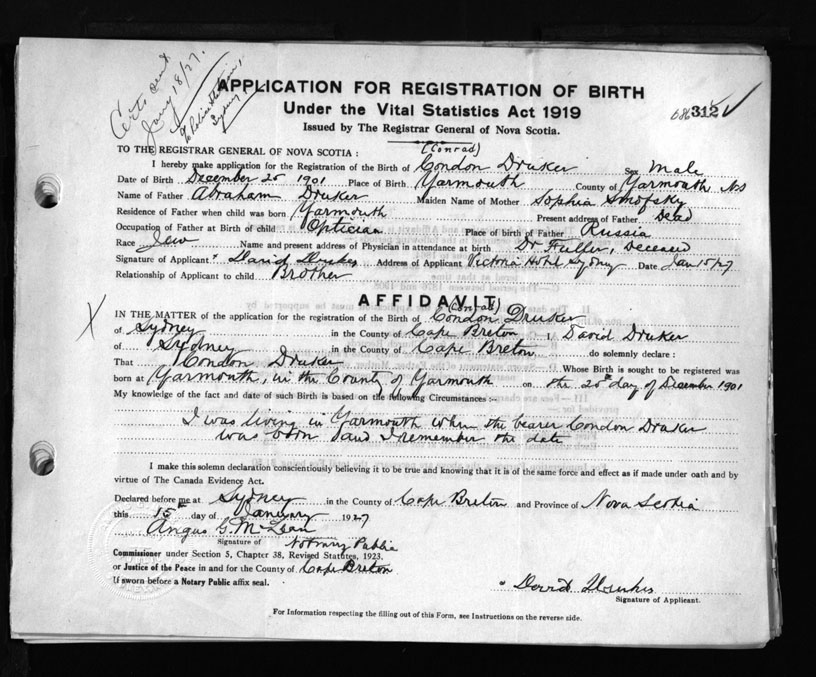 Certs sent
Jany 18/27.
Sydney
APPLICATION FOR REGISTRATION OF BIRTH
Under the Vital Statistics Act 1919
686312 ✓
Issued by The Registrar General of Nova Scotia.
TO THE REGISTRAR GENERAL OF NOVA SCOTIA : (Conrad)
I hereby make application for the Registration of the Birth of Condon Druker Sex Male
Date of Birth December 20 1901 Place of Birth Yarmouth County of Yarmouth N.S
Name of Father Abraham Druker Maiden Name of Mother Sophia Smofsky
Residence of Father when child was born Yarmouth Present address of Father Dead
Occupation of Father at Birth of child Optician Place of birth of Father Russia
Race Jew Name and present address of Physician in attendance at birth Dr Fuller, Deceased
Signature of Applicant David Druker Address of Applicant Victoria Hotel Sydney Date Jan 15/27
Relationship of Applicant to child Brother
AFFIDAVIT
(Conrad)
X IN THE MATTER of the application for the registration of the Birth of Condon Druker
of Sydney in the County of Cape Breton I, David Druker
of Sydney in the County of Cape Breton do solemnly declare :
That Condon Druker Whose Birth is sought to be registered was
born at Yarmouth, in the County of Yarmouth on the 20th day of December 1901
My knowledge of the fact and date of such Birth is based on the following Circumstances :-
I was living in Yarmouth when the bearer Condon Druker
was born and I remember the date
I make this solemn declaration conscientiously believing it to be true and knowing that it is of the same force and effect as if made under oath and by
virtue of The Canada Evidence Act.
Declared before me at Sydney in the County of Cape Breton and Province of Nova Scotia
this 15th day of January 1927
Angus G. McLean
Signature of Notary Public
Commissioner under Section 5, Chapter 38, Revised Statutes, 1923.
or Justice of the Peace in and for the County of Cape Breton
If sworn before a Notary Public affix seal.
David Druker
Signature of Applicant.
For Information respecting the filling out of this Form, see Instructions on the reverse side.